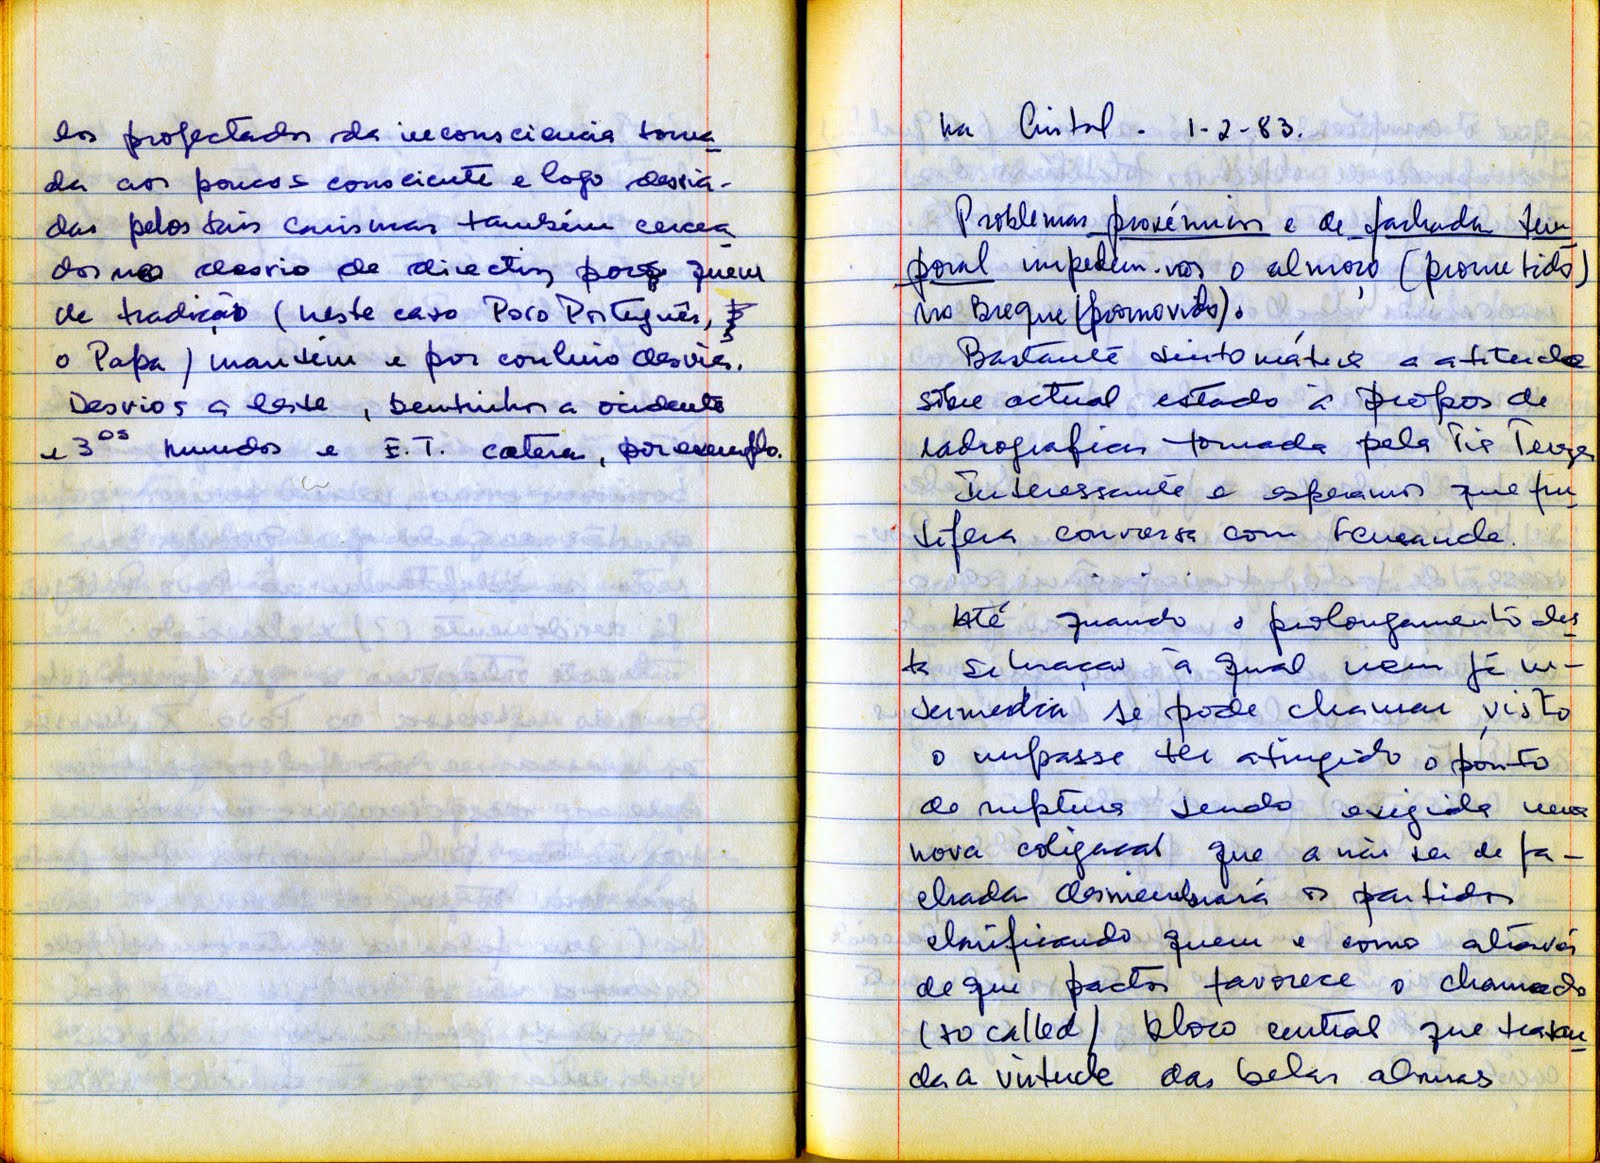 los projectados da inconsciencia toma
da aos poucos consciente e logo desvia-
das pelos tais carismas também cercea
dos no desvio de directriz quem
de tradição (neste caso Povo Português,
o Papa) mantém e por conluio desvia.
Desvios a leste, bentinhos a ocidente
e 3os mundos e E.T. catera, por exemplo.
Na Cristal - 1-2-83.
Problemas proxémicos e de fachada tem
poral impedem-nos o almoço (prometido)
no Breque (pormovido).
Bastante sintomática a atitude
sobre actual estado à propos de
radiografias tomada pela Tia
Interessante e esperamos que fru
tifera conversa com Fernanda.
Até quando o prolongamento des
ta situação à qual nem já in-
termédia se pode chamar, visto
o impasse ter atingido o ponto
de ruptura sendo exigida uma
nova coligação que a não ser de fa-
chada desmembrará os partidos
clarificando quem e como através
de que pactos favorece o chamado
(so called) bloco central que
da a virtude das belas almas